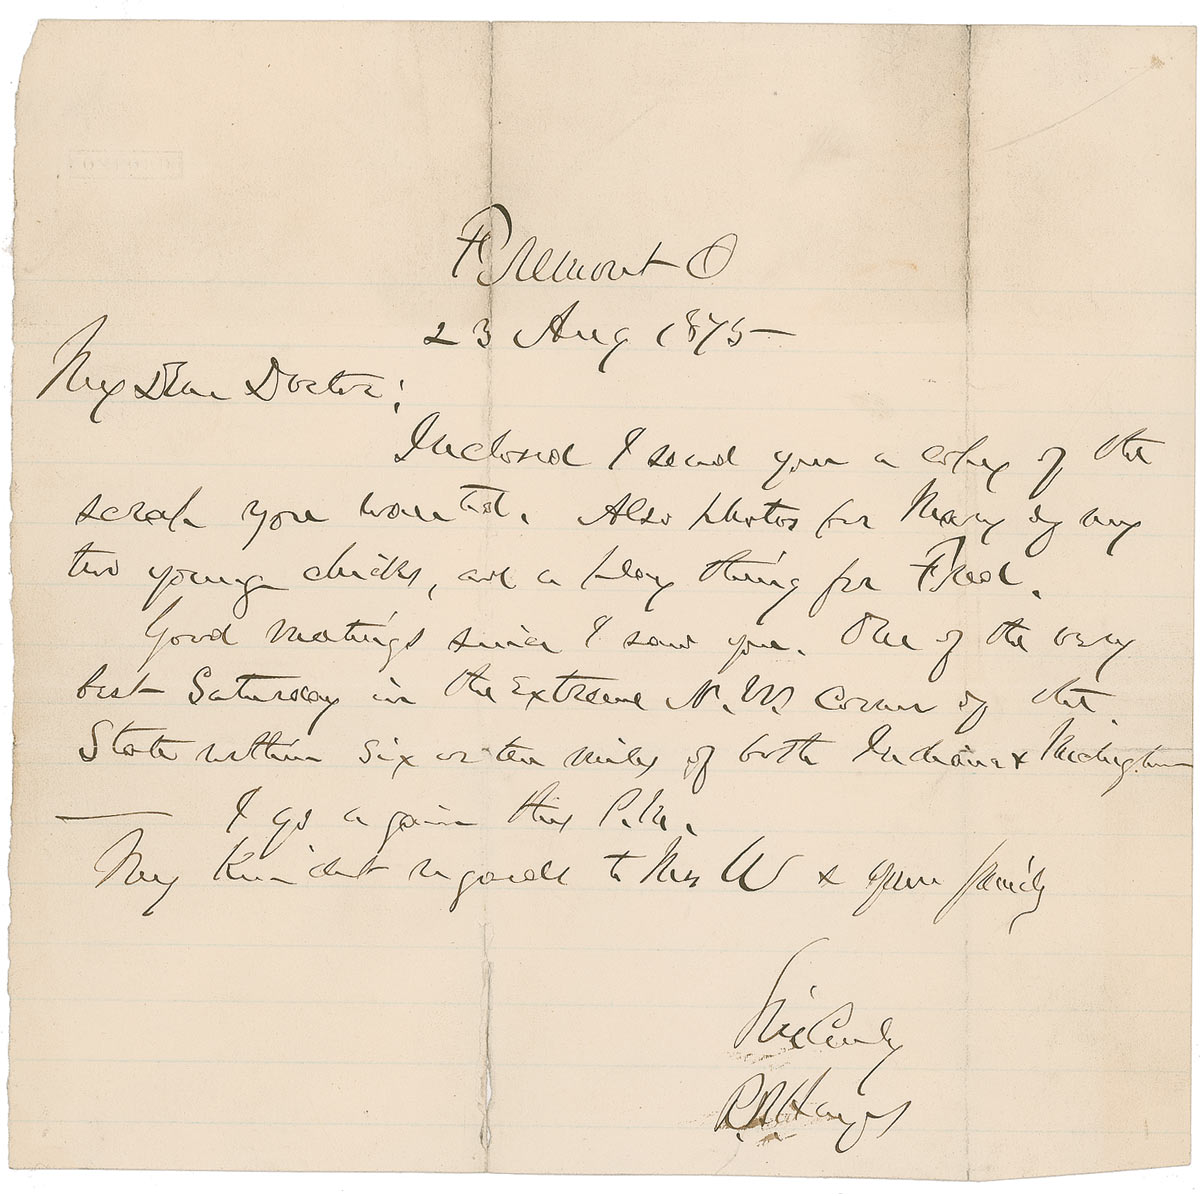 Fremont O
23 Aug 1875
My Dear Doctor:
Inclosed I send you a copy of the
scrap you wanted. Also photos for Mary of my
two young chicks, and a play thing for Fred.
Good meetings since I saw you. One of the very
best Saturday in the extreme N.W. corner of the
State within six or ten miles of both Indiana & Michigan
— I go again this P.M.
My kindest regards to Mrs W & your family
Sincerely
R.B. Hayes